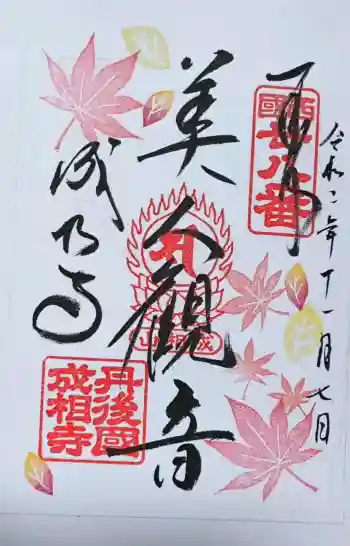 奉拝
令和二年十一月七日
西國廿八番
美人観音
成相山
成相寺
丹後國
成相寺